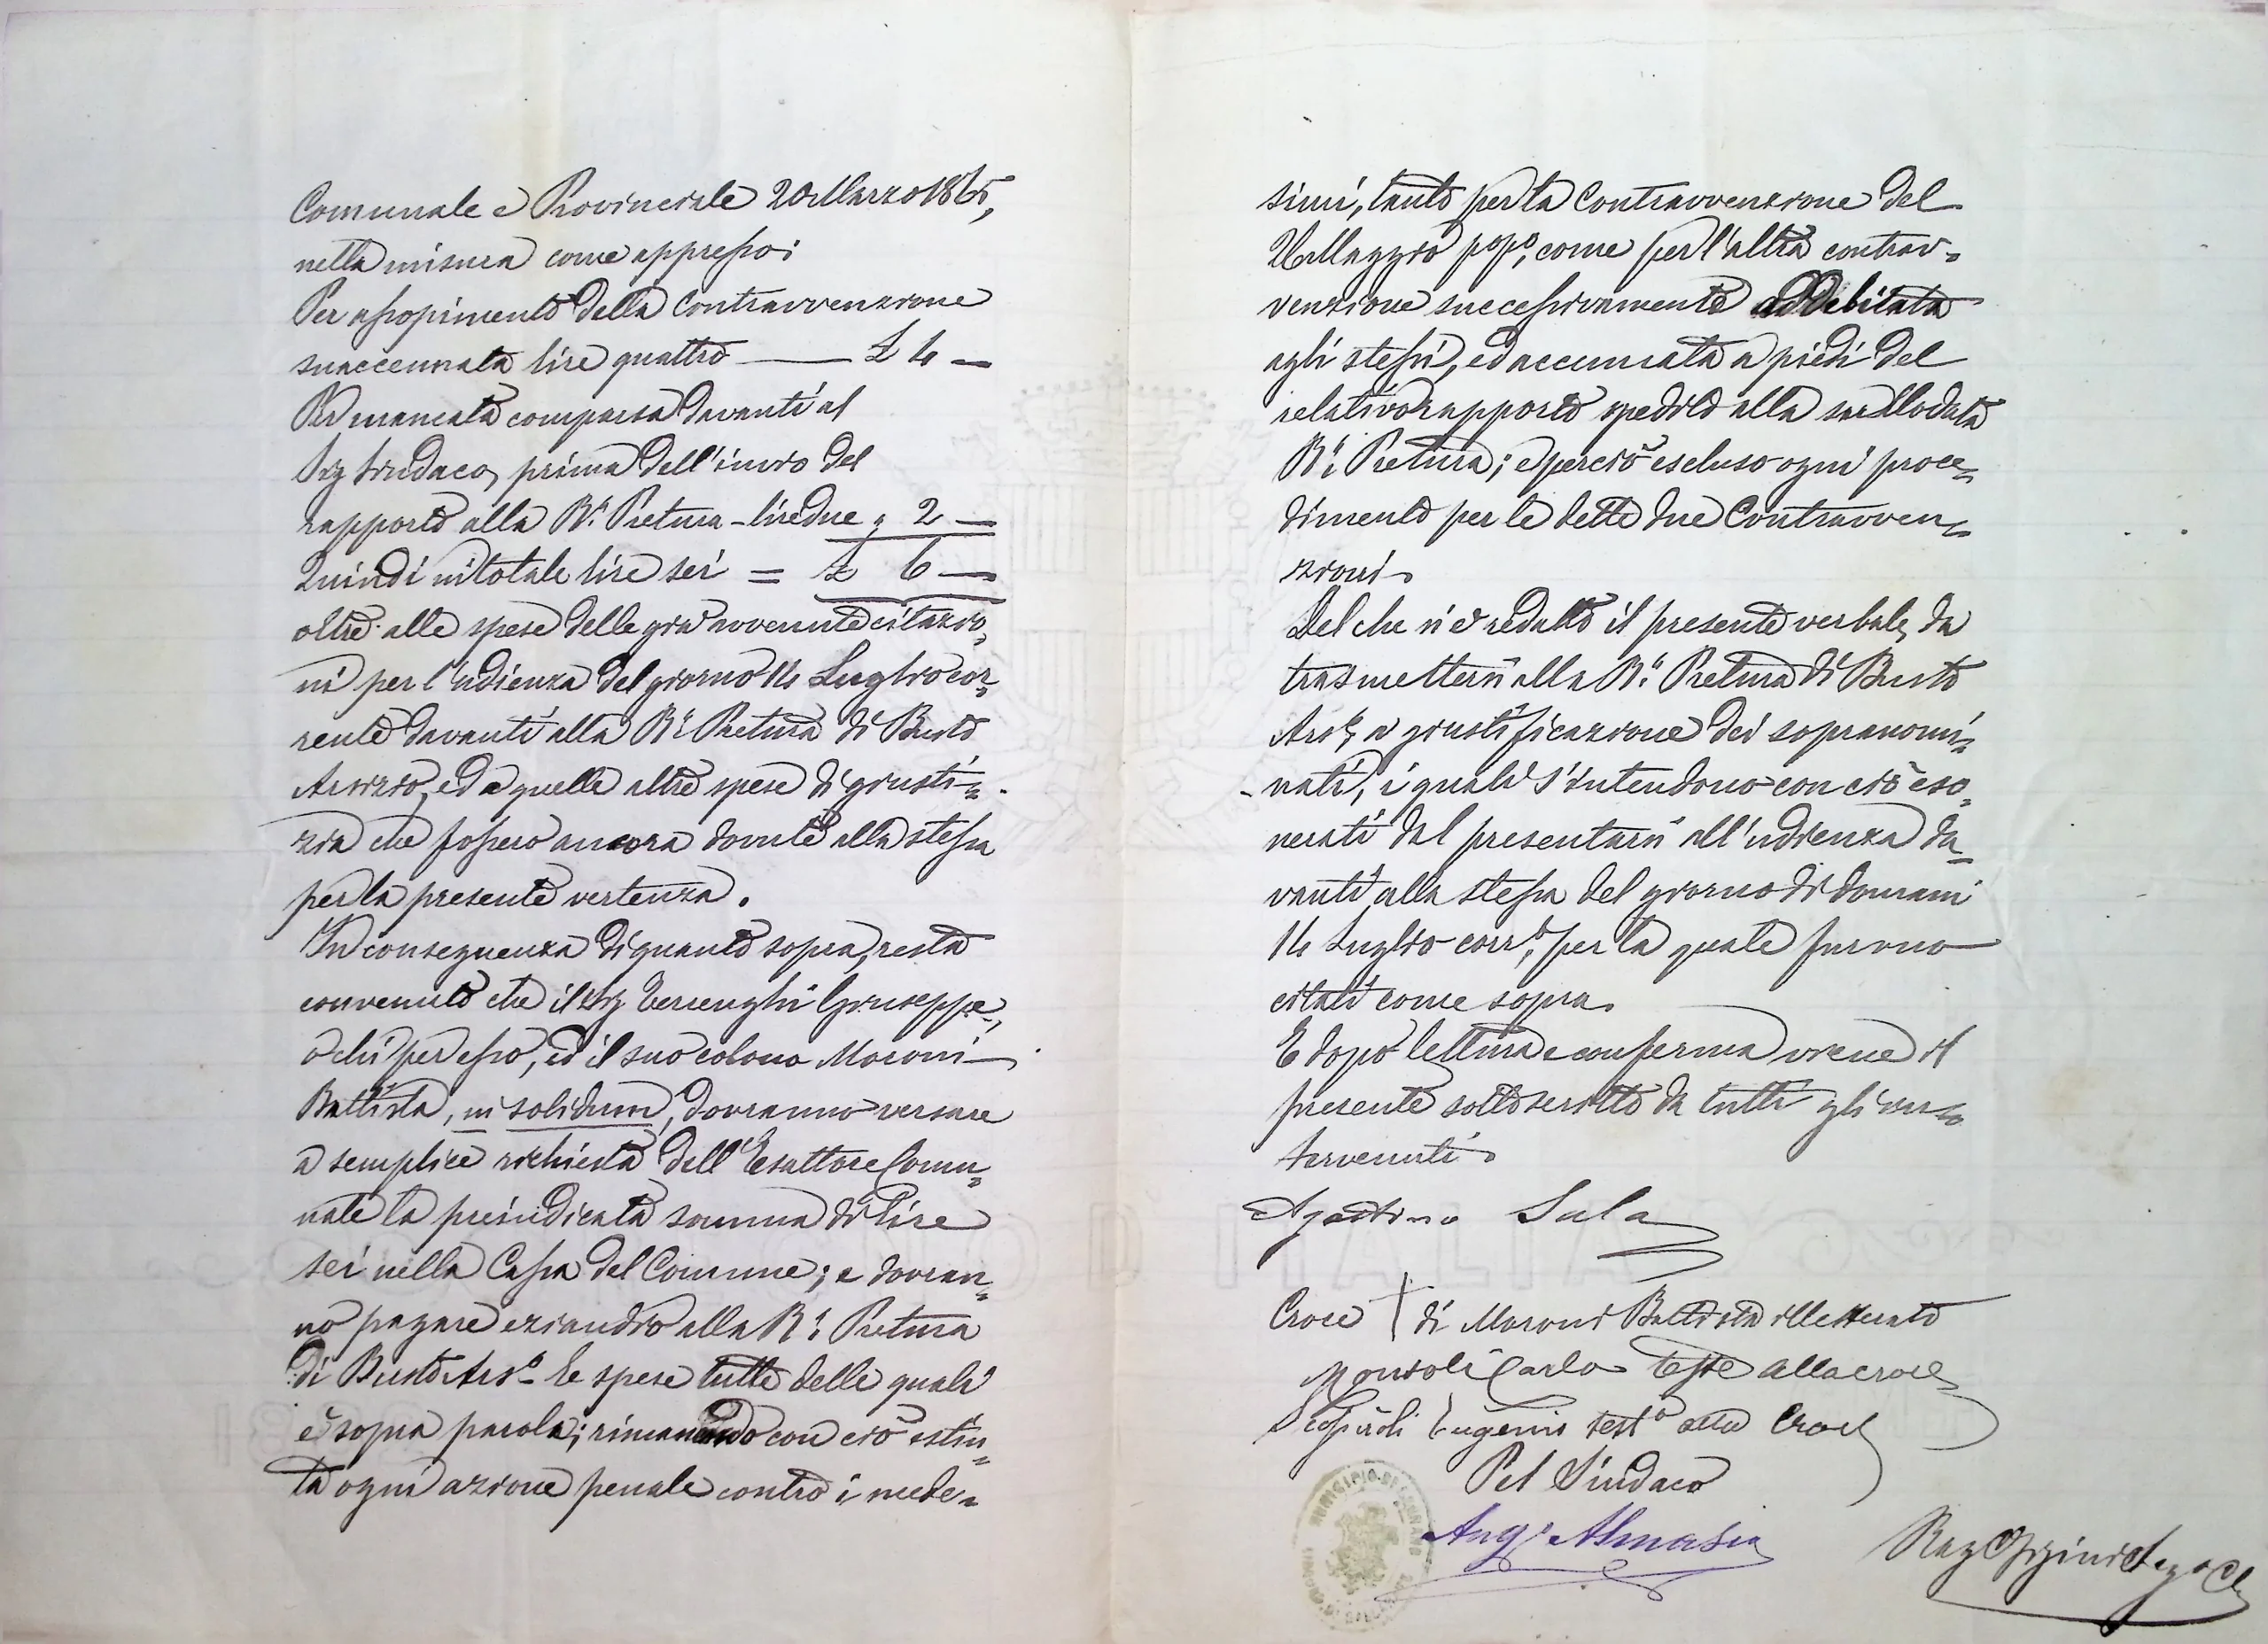 Comunale e Provinciale 20 Marzo 1865,
nella misura come appresso:
Per assopimento della Contravvenzione
suaccennata lire quattro — £ 4 —
Per mancata comparsa davanti al
Sig Sindaco, prima dell'invio del
rapporto alla R.ª Pretura - lire due " 2 —
Quindi in totale lire sei = £ 6 —
oltre alle spese delle già avvenute citazio„
ni per l'udienza del giorno 14 Luglio cor„
rente davanti alla R.ª Pretura di Busto
Arsizio, ed a quelle altre spese di giusti„
zia che fossero ancora dovute alla stessa
per la presente vertenza.
In conseguenza di quanto sopra, resta
convenuto che il Sig. Giuseppe,
o chi per esso, ed il suo colono Moroni
Battista, in solidum, dovranno versare
a semplice richiesta dell'Esattore Comu„
nale la preindicata somma di Lire
sei nella Cassa del Comune; e dovran„
no pagare eziandio alla R.ª Pretura
di Busto Ars.º le spese tutte delle quali
è sopra parola; rimanendo con ciò estin„
ta ogni azione penale contro i mede„
simi, tanto per la Contravvenzione del
Villaggio come per l'altra contrav„
venzione successivamente addebitata
agli stessi, ed accennata a piedi del
relativo rapporto spedito alla sullodata
R.ª Pretura; e perciò escluso ogni proce„
dimento per le dette due Contravven„
zioni.
Del che si è redatto il presente verbale, da
trasmettersi alla R.ª Pretura di Busto
Ars.º, a giustificazione dei sopranomi„
nati, i quali s'intendono con ciò eso„
nerati dal presentarsi all'udienza da„
vanti alla stessa del giorno di domani
14 Luglio corr.e, per la quale furono
citati come sopra.
E dopo lettura e conferma viene il
presente sottoscritto da tutti gli in„
tervenuti.
Agostino Sala
Croce † di Moroni Battista illetterato
Carlo teste alla croce
Eugenio test.º alla Croce
Pel Sindaco
Ang.º Almasio
Rag